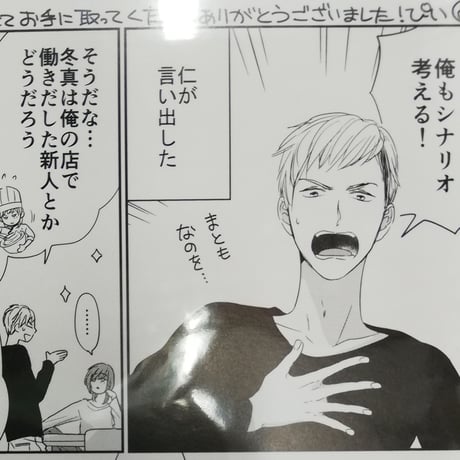 てお手に取ってくだ
ありがとうございました！ぴい
俺もシナリオ
考える！
仁が
言い出した
まとも
なのを…
そうだな…
冬真は俺の店で
働きだした新人とか
どうだろう
………